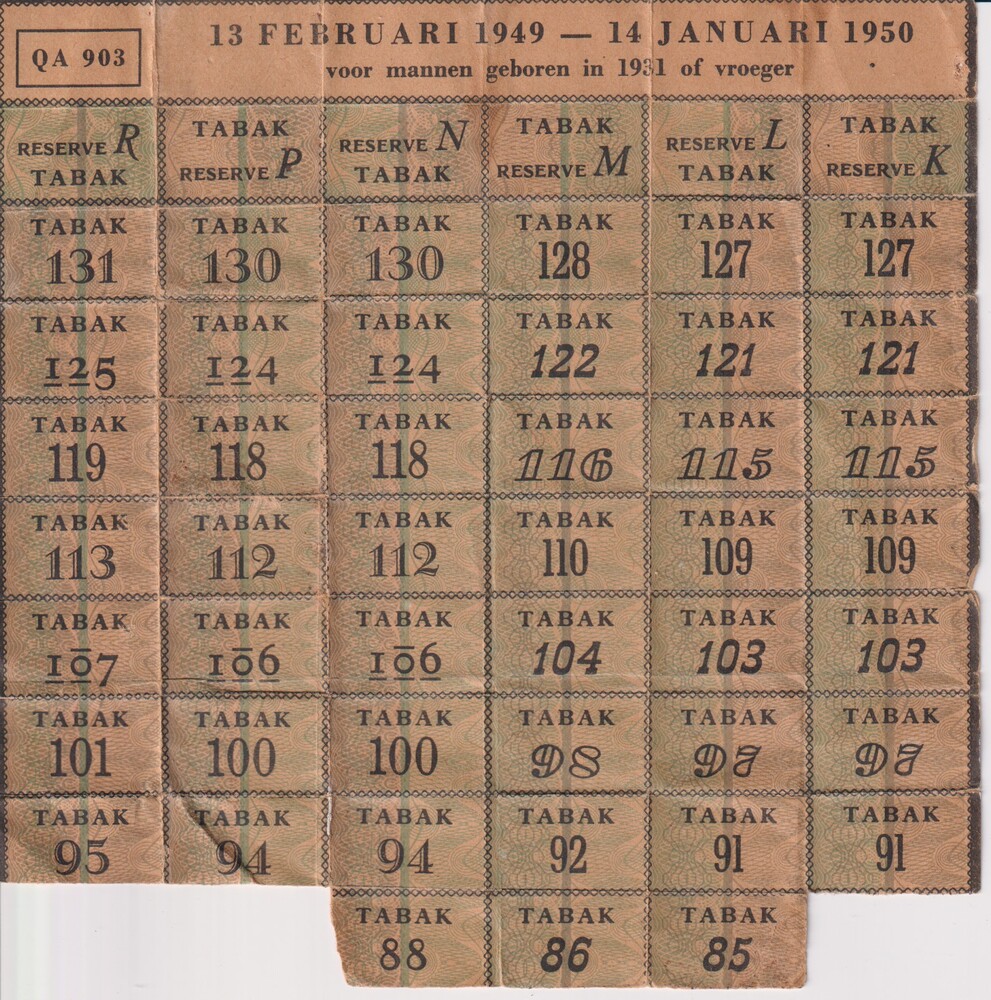 QA 903
13 FEBRUARI 1949 — 14 JANUARI 1950
voor mannen geboren in 1931 of vroeger
RESERVE R TABAK RESERVE N TABAK RESERVE L TABAK
TABAK RESERVE P TABAK RESERVE M TABAK RESERVE K
TABAK TABAK TABAK TABAK TABAK TABAK
131 130 130 128 127 127
TABAK TABAK TABAK TABAK TABAK TABAK
125 124 124 122 121 121
TABAK TABAK TABAK TABAK TABAK TABAK
119 118 118 116 115 115
TABAK TABAK TABAK TABAK TABAK TABAK
113 112 112 110 109 109
TABAK TABAK TABAK TABAK TABAK TABAK
107 106 106 104 103 103
TABAK TABAK TABAK TABAK TABAK TABAK
101 100 100 98 97 97
TABAK TABAK TABAK TABAK TABAK TABAK
95 94 94 92 91 91
TABAK TABAK TABAK
88 86 85